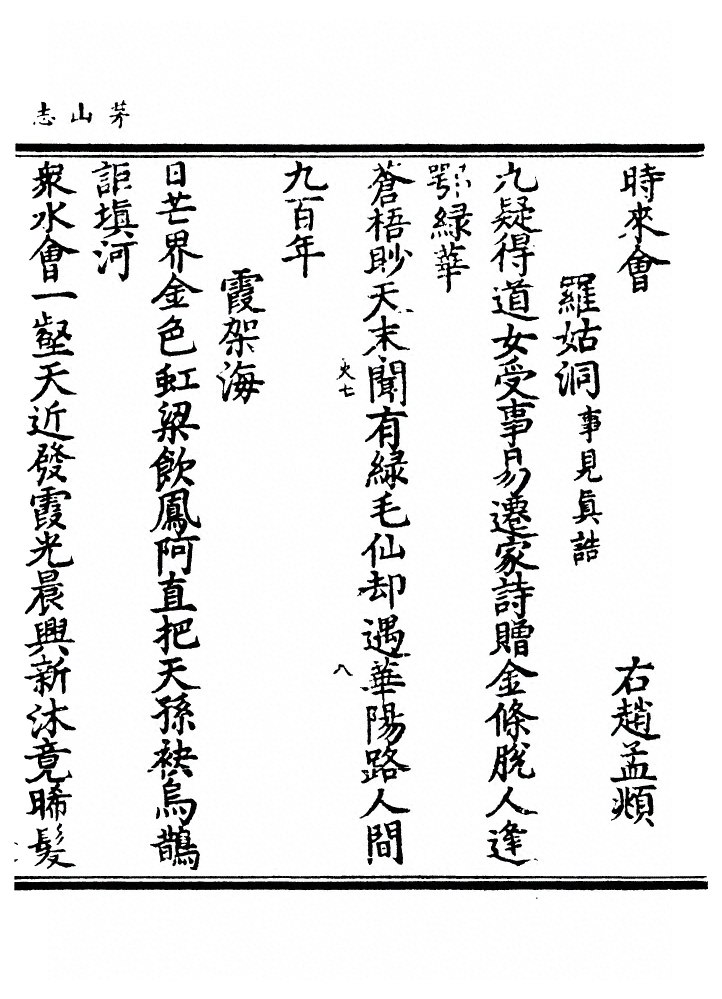 茅山志
時來會
右趙孟頫
羅姑洞 事見真誥
九疑得道女受事易遷家詩贈金條脫人逢
鄂綠華
蒼梧眇天末聞有綠毛仙却遇華陽路人間
九百年
霞架海
日芒界金色虹梁飲鳳阿直把天孫袂烏鵲
詎填河
衆水會一壑天近發霞光晨興新沐竟晞髮